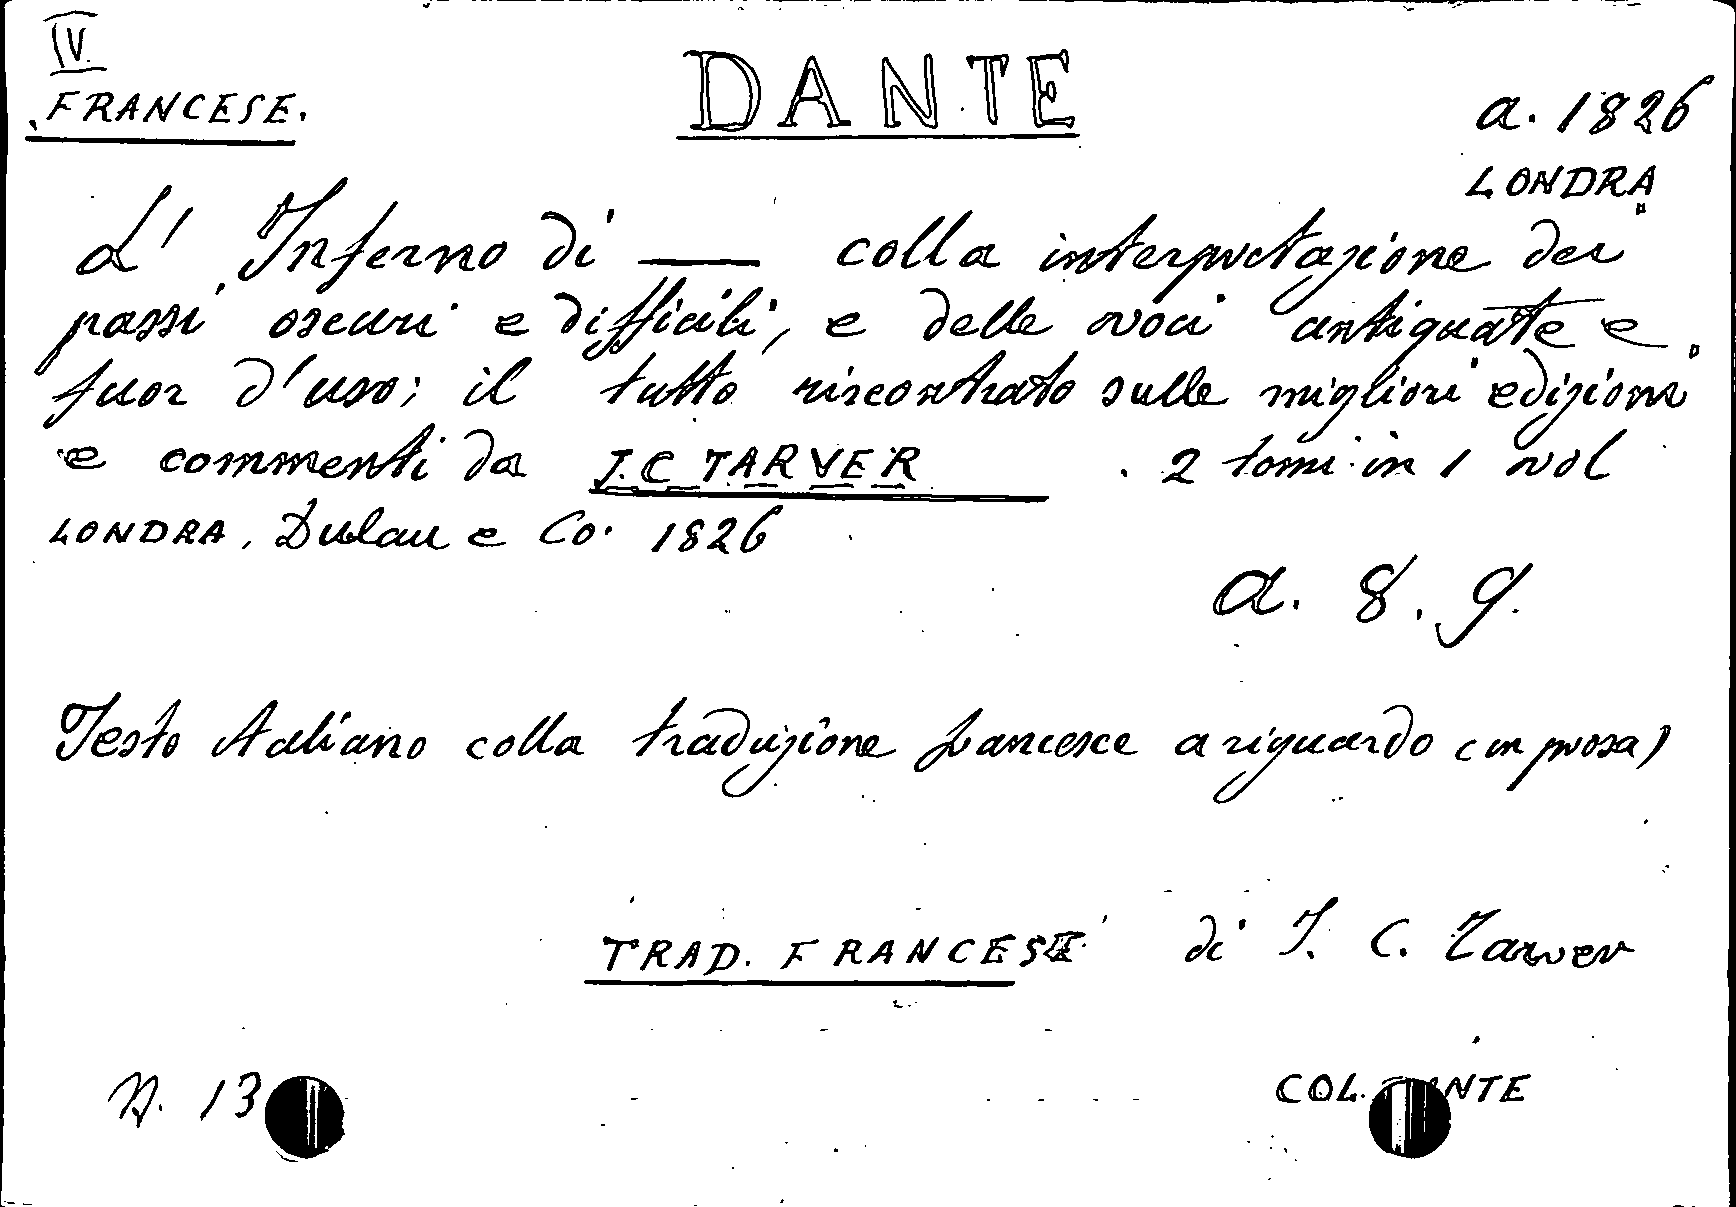 IV.
FRANCESE.
DANTE
a. 1826
LONDRA
L' Inferno di —— colla interpretazione dei
passi oscuri e difficili, e delle voci antiquate e
fuor d'uso; il tutto riscontrato sulle migliori edizioni
e commenti da J. C TARVER . 2 tomi in 1 vol
LONDRA, Dulau e Co. 1826
a. 8. g.
Testo italiano colla traduzione francese a riguardo (in prosa)
TRAD. FRANCESE di J. C. Tarver
N. 13
COL.